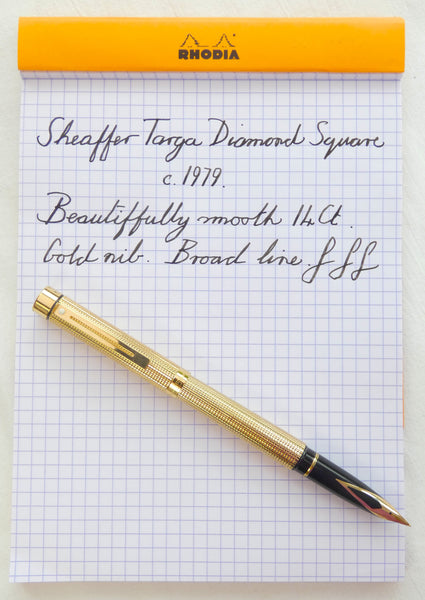 RHODIA
Sheaffer Targa Diamond Square
c. 1979.
Beautiffully smooth 14 Ct.
Gold nib. Broad line. f f f